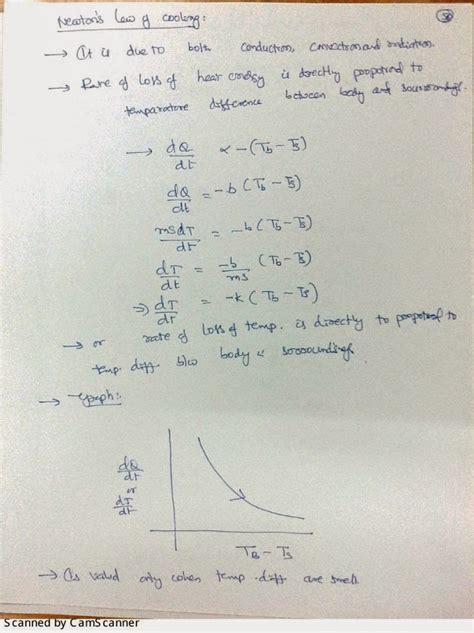 Newton's law of cooling:
→ It is due to both conduction, convection and radiation.
→ Rate of loss of heat energy is directly propotional to
temparature difference between body and sourroundings.
→ dQ/dt ∝ -(Tb - Ts)
dQ/dt = -b (Tb - Ts)
msdT/dt = -b (Tb - Ts)
dT/dt = -b/ms (Tb - Ts)
⇒ dT/dt = -k (Tb - Ts)
→ or rate of loss of temp. is directly to propotnal to
temp. diff b/w body & sorroundings.
→ Graph:
dQ/dt
or
dT/dt
TB - Ts
→ Is valid only when temp. diff are small
Scanned by CamScanner